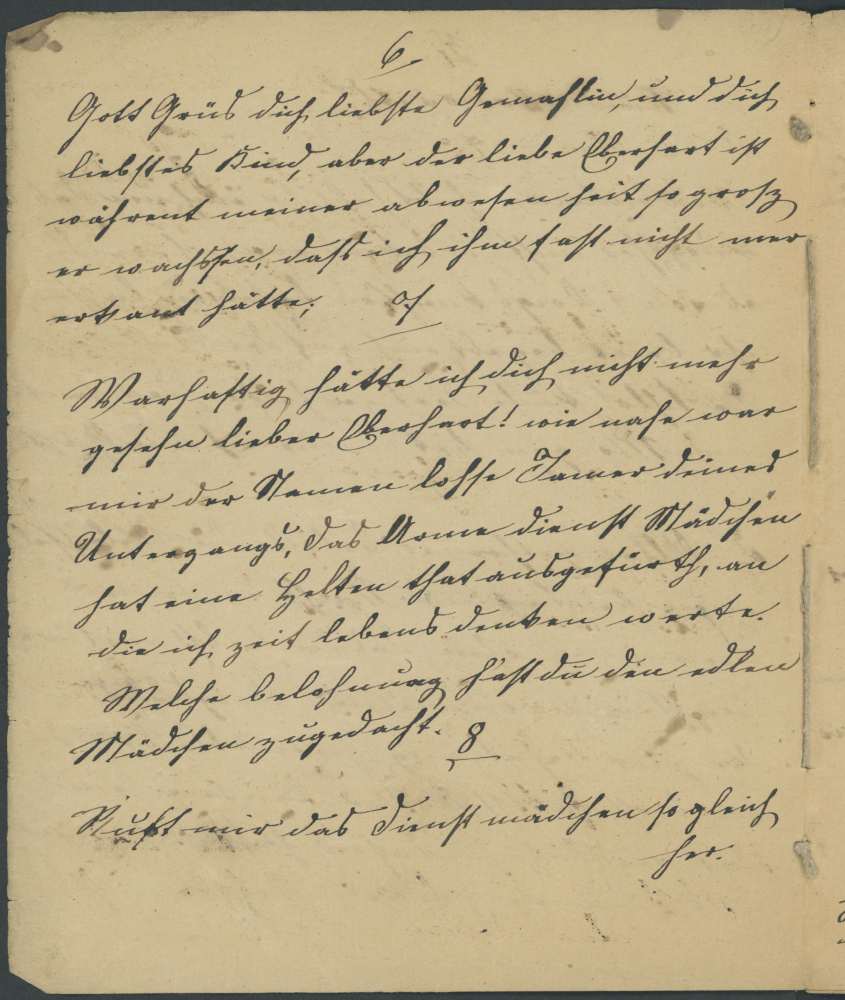 6
Gott Grüs dich liebste Gemahlin, und dich
liebstes Kind, aber der liebe Eberhart ist
währent meiner abwesen heit so grosz
er wachssen, dass ich ihm fast nicht mer
erkant hätte;
7
Warhaftig hätte ich dich nicht mehr
gesehn lieber Eberhart! wie nahe war
mir der Namen losse Jamer deines
Untergangs, das Arme dienst Mädchen
hat eine Helten that ausgefürth, an
die ich zeit lebens denken werte.
Welche belohnung hast du den edlen
Mädchen zugedacht.
8
Ruft mir das Dienst mädchen so gleich
her.